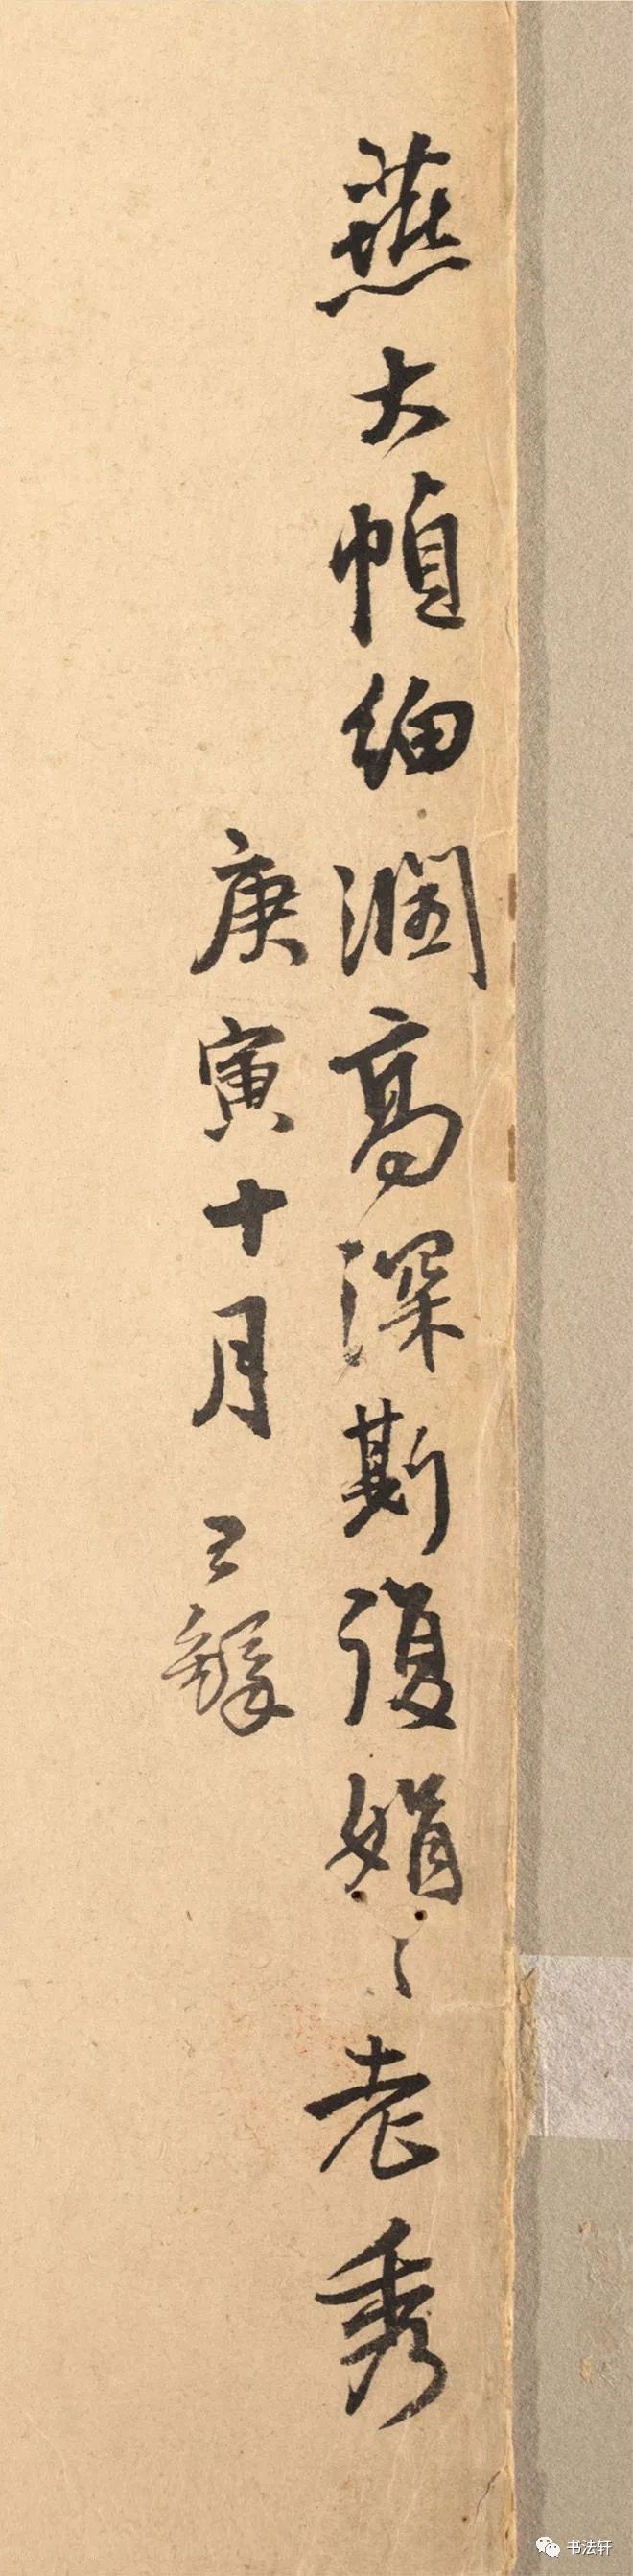 燕大幀細潤高深斯復娟〻老秀
庚寅十月 王鐸
书法轩